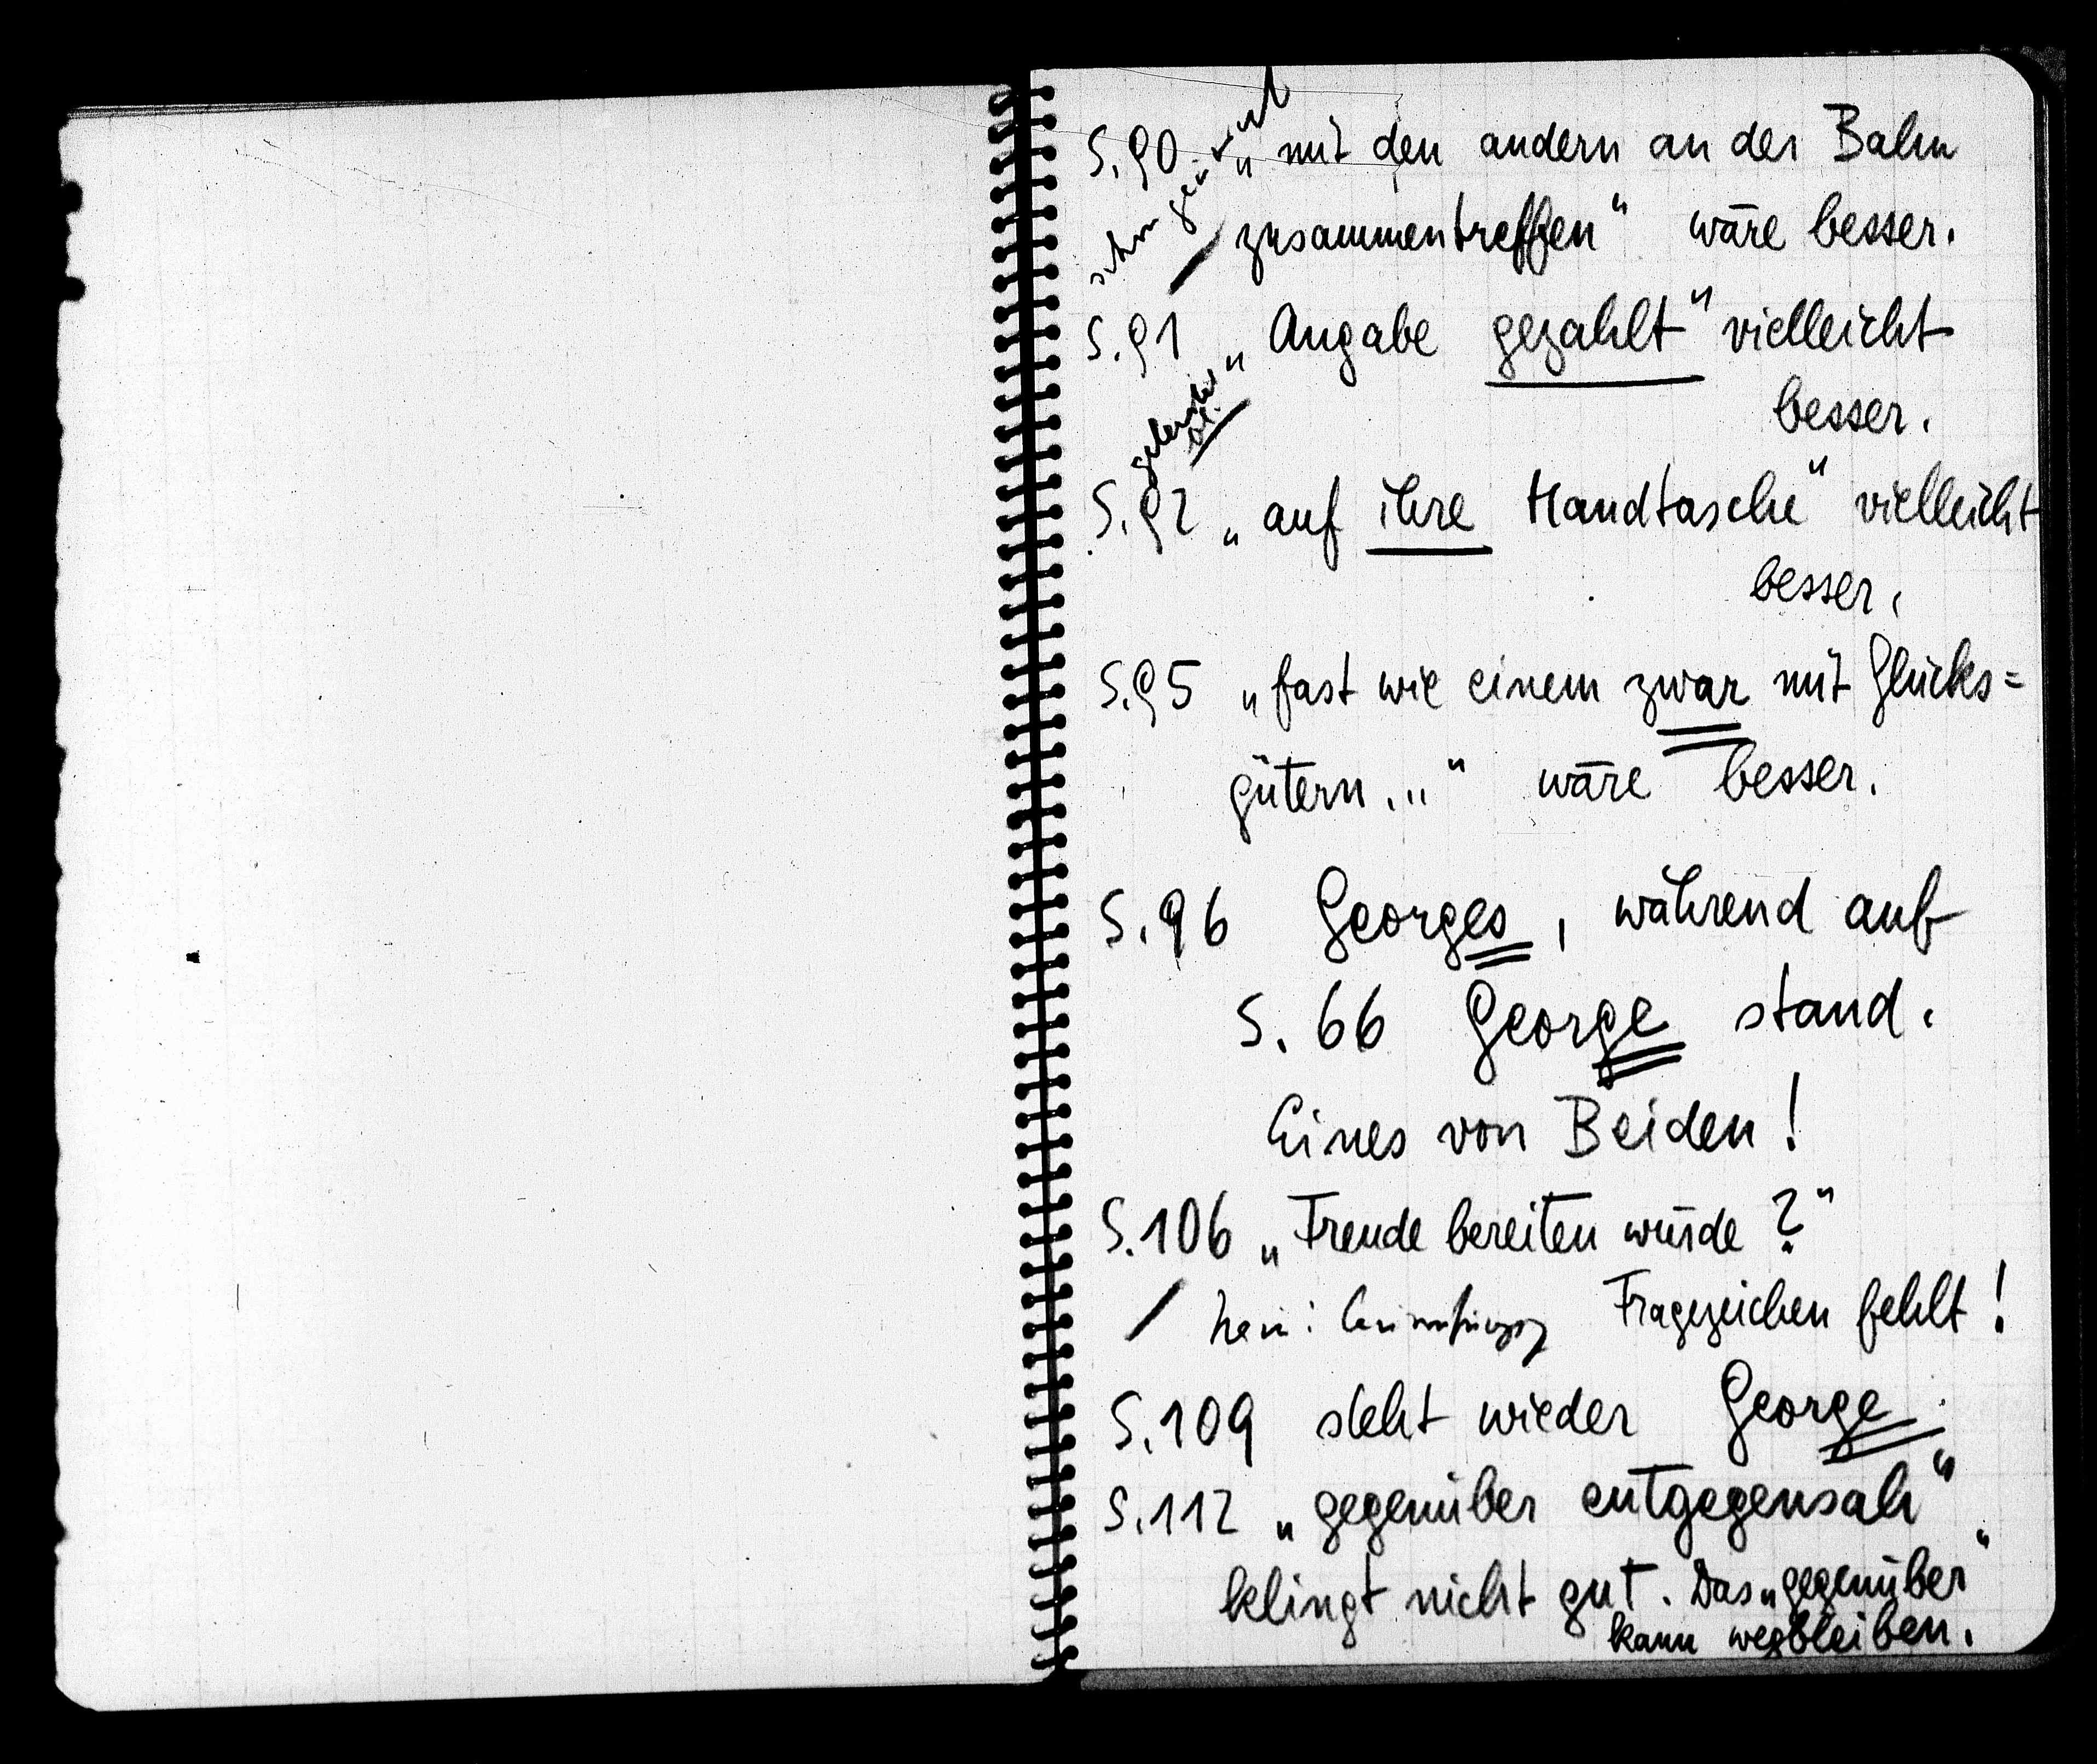 S. 90. „mit den andern an der Bahn
zusammentreffen" wäre besser.
S. 91 „Angabe gezahlt" vielleicht
besser.
S. 92 „auf ihre Handtasche" vielleicht
besser.
S. 95 „fast wie einem zwar mit Glücks=
gütern..." wäre besser.
S. 96 Georges, während auf
S. 66 George stand.
Eines von Beiden!
S. 106 „Freude bereiten würde?"
Fragezeichen fehlt!
S. 109 steht wieder George.
S. 112 „gegenüber entgegensah"
klingt nicht gut. Das „gegenüber"
kann wegbleiben.